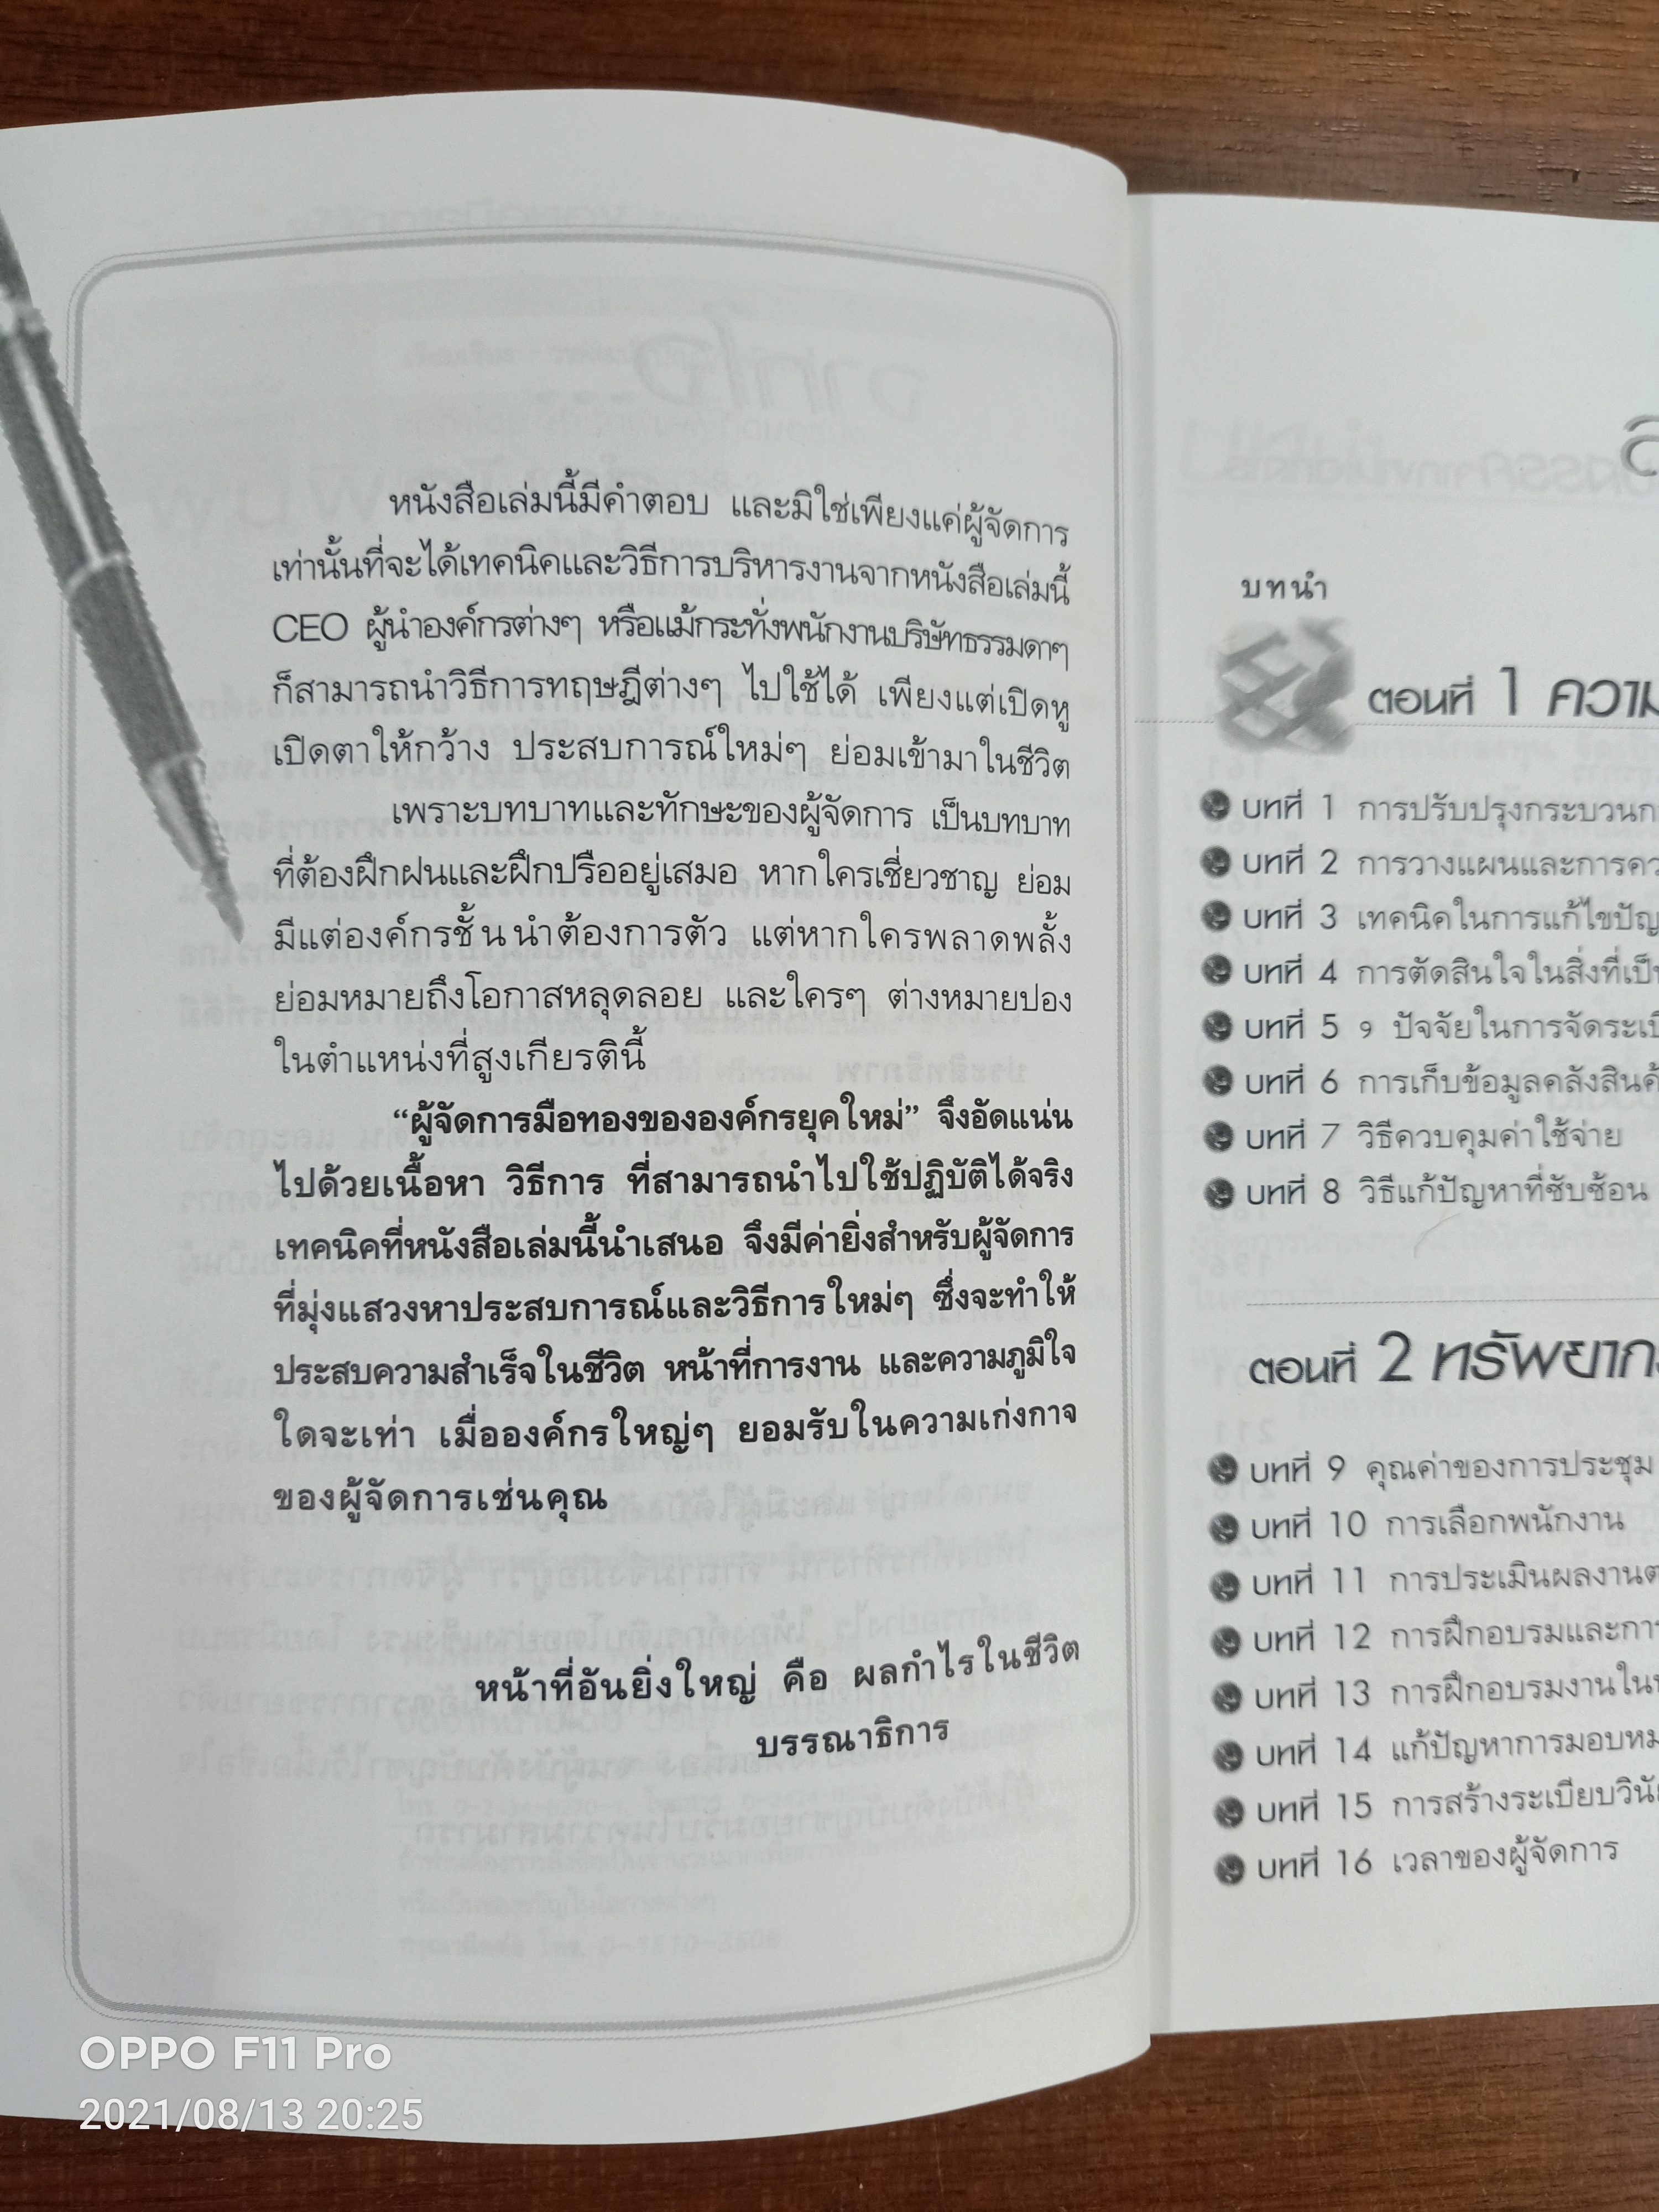 หนังสือเล่มนี้มีคำตอบ และมิใช่เพียงแค่ผู้จัดการ
เท่านั้นที่จะได้เทคนิคและวิธีการบริหารงานจากหนังสือเล่มนี้
CEO ผู้นำองค์กรต่างๆ หรือแม้กระทั่งพนักงานบริษัทธรรมดาๆ
ก็สามารถนำวิธีการทฤษฎีต่างๆ ไปใช้ได้ เพียงแต่เปิดหู
เปิดตาให้กว้าง ประสบการณ์ใหม่ๆ ย่อมเข้ามาในชีวิต
เพราะบทบาทและทักษะของผู้จัดการ เป็นบทบาท
ที่ต้องฝึกฝนและฝึกปรืออยู่เสมอ หากใครเชี่ยวชาญ ย่อม
มีแต่องค์กรชั้นนำต้องการตัว แต่หากใครพลาดพลั้ง
ย่อมหมายถึงโอกาสหลุดลอย และใครๆ ต่างหมายปอง
ในตำแหน่งที่สูงเกียรตินี้
“ผู้จัดการมือทองขององค์กรยุคใหม่” จึงอัดแน่น
ไปด้วยเนื้อหา วิธีการ ที่สามารถนำไปใช้ปฏิบัติได้จริง
เทคนิคที่หนังสือเล่มนี้นำเสนอ จึงมีค่ายิ่งสำหรับผู้จัดการ
ที่มุ่งแสวงหาประสบการณ์และวิธีการใหม่ๆ ซึ่งจะทำให้
ประสบความสำเร็จในชีวิต หน้าที่การงาน และความภูมิใจ
ใดจะเท่า เมื่อองค์กรใหญ่ๆ ยอมรับในความเก่งกาจ
ของผู้จัดการเช่นคุณ
หน้าที่อันยิ่งใหญ่ คือ ผลกำไรในชีวิต
บรรณาธิการ
บทนำ
ตอนที่ 1 ความ
บทที่ 1 การปรับปรุงกระบวนก
บทที่ 2 การวางแผนและการคว
บทที่ 3 เทคนิคในการแก้ไขปัญ
บทที่ 4 การตัดสินใจในสิ่งที่เป็น
บทที่ 5 9 ปัจจัยในการจัดระเบี
บทที่ 6 การเก็บข้อมูลคลังสินค้
บทที่ 7 วิธีควบคุมค่าใช้จ่าย
บทที่ 8 วิธีแก้ปัญหาที่ซับซ้อน
ตอนที่ 2 ทรัพยาก
บทที่ 9 คุณค่าของการประชุม
บทที่ 10 การเลือกพนักงาน
บทที่ 11 การประเมินผลงานต
บทที่ 12 การฝึกอบรมและการ
บทที่ 13 การฝึกอบรมงานใน
บทที่ 14 แก้ปัญหาการมอบหม
บทที่ 15 การสร้างระเบียบวินั
บทที่ 16 เวลาของผู้จัดการ
OPPO F11 Pro
2021/08/13 20:25